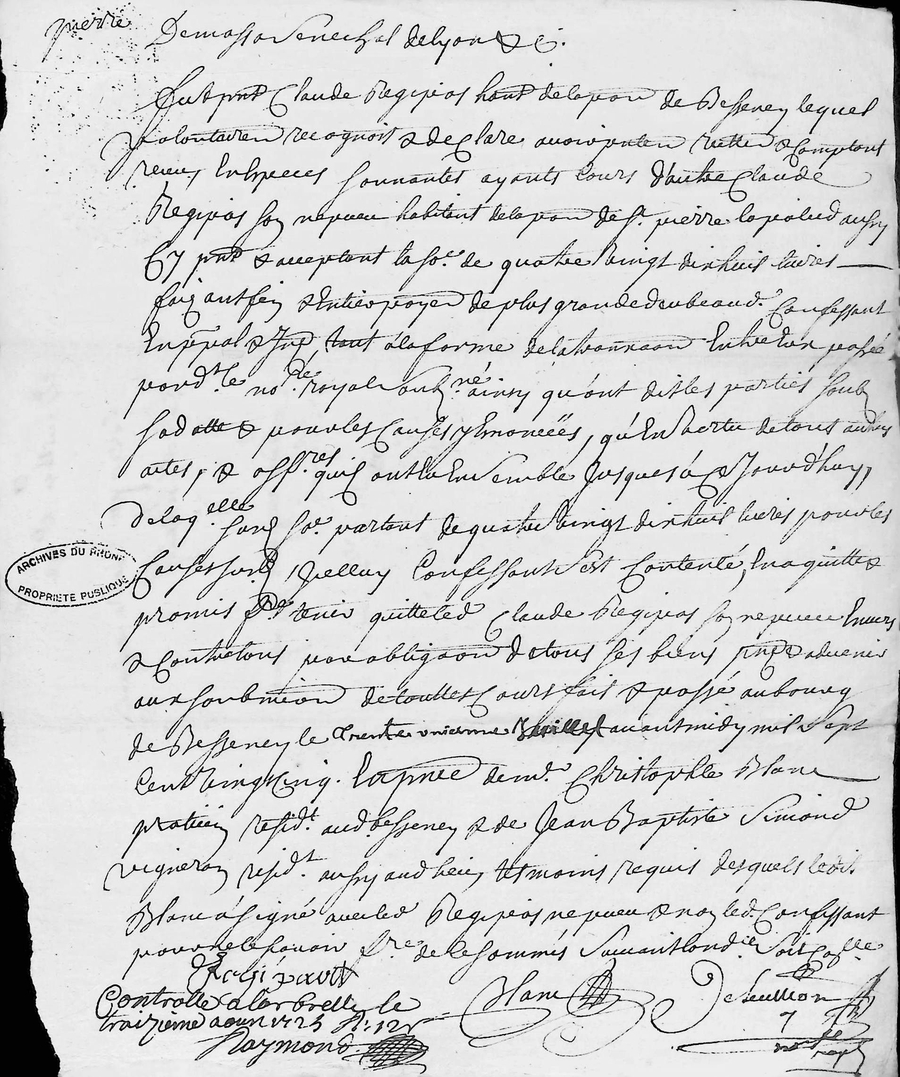 pierre
De massa Senechal de lyon & C.
fut pnt Claude Regipas hant de la paroi de Besseney lequel
volontairem recognoit & declare avoir reellem & Comptant
receu En Especes sonnantes ayants Cours d'autre Claude
Regipas son nepveu habitant de la paroi de St. pierre la palud aussy
Cy pnt & acceptant la so.e de quatre vingt dix huit livres
faisant fin & Entier payem de plus grande deube aud.t Confessant
En ppal & Jnp tant a la forme de la Entre Eux passé
pard.t le no.re royal soub.né ainsy qu'ont dit les parties soub
sa datte & pour les Causes y Enoncées, qu'En vertu de tous autres
actes, & aff.res qu'ils ont Eu Ensemble Jusques à Ce Jourd'huy,
de laq.elle susd so.e partant de quatre vingt dix huit livres pour les
Causes susd Jcelluy Confessant s'est Contenté, En a quitté &
promis tenir quitte led Claude Regipas son nepveu Envers
& Contre tous par obligaon de tous ses biens pnts & advenir
aux soubmion de touttes Cours fait & passé au bourg
de Besseney le trente unieme Juillet avant midy mil Sept
Cent vingt Cinq. En pnce de m.e Christophle Blanc
praticien resid.t aud besseney & de Jean Baptiste Simond
vigneron resid.t aussy aud lieu tesmoins requis desquels ledit
Blanc a signé avec led Regipas nepveu & non led. Confessant
pour ne le scavoir f.re de le sommés Suivant l'ond.ce Soit Co.lle
Regipas
Controllé a Larbrelle le
traizieme aoust 1725 R: 12 s
Raymond
Blanc
ARCHIVES DU RHONE
PROPRIETE PUBLIQUE